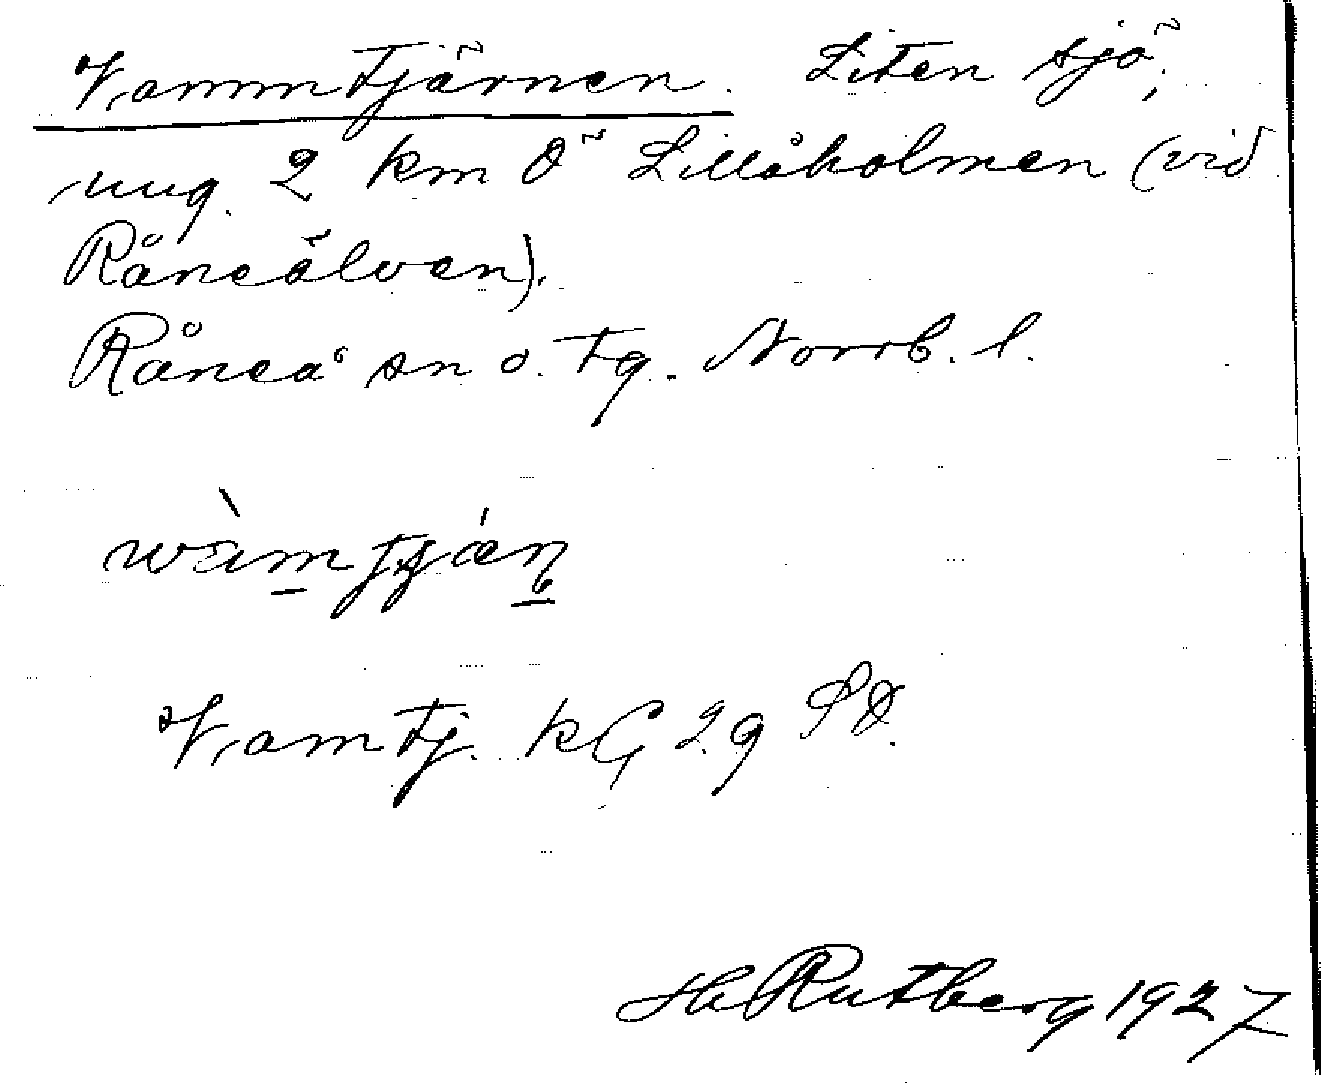 Vammtjärnen. Liten sjö,
ung. 2 km Ö Lillåholmen (vid
Råneälven).
Råneå sn o. tg. Norrb. l.
wàm
Vamtj. kG 29 SO.
Hj Rutberg 1927